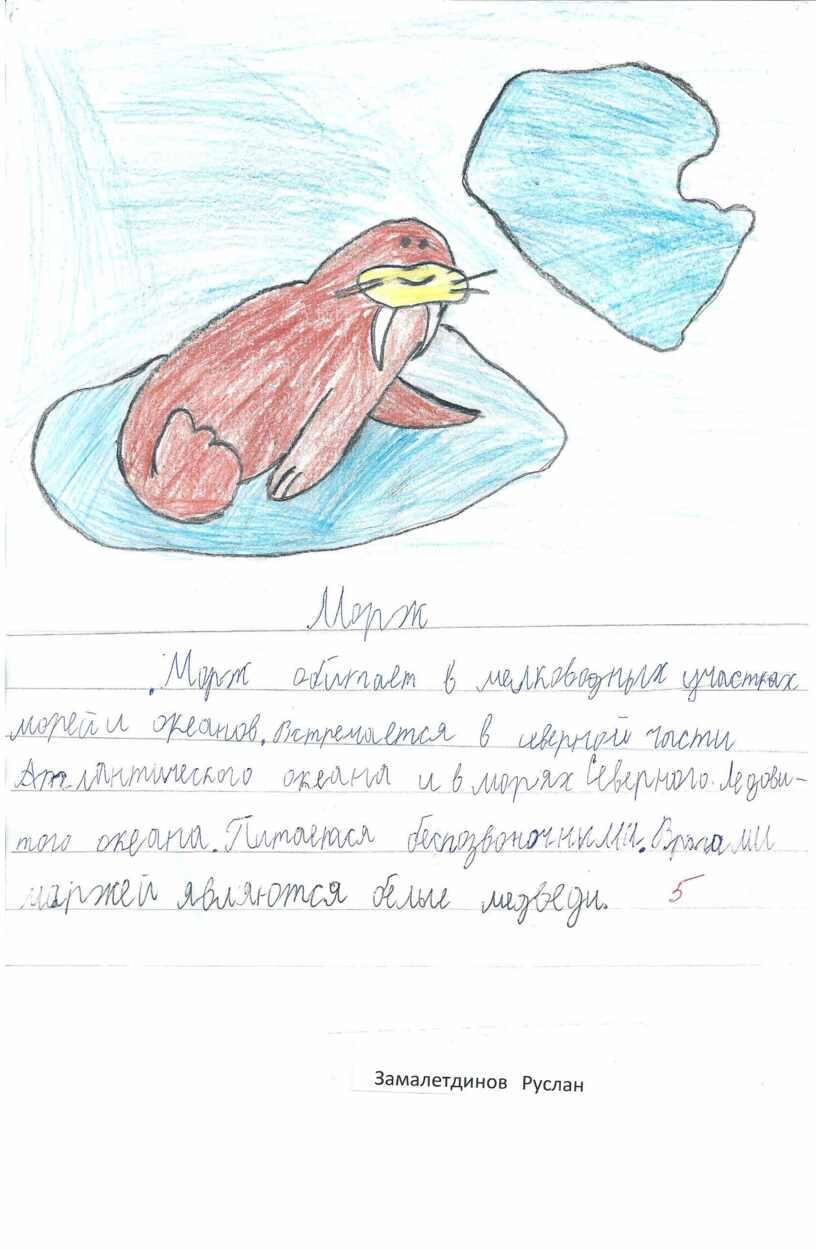 Морж
Морж обитает в мелководных участках
морей и океанов. Встречается в северной части
Атлантического океана и в морях Северного Ледови-
того океана. Питаются беспозвоночными. Врагами
моржей являются белые медведи. 5
Замалетдинов Руслан